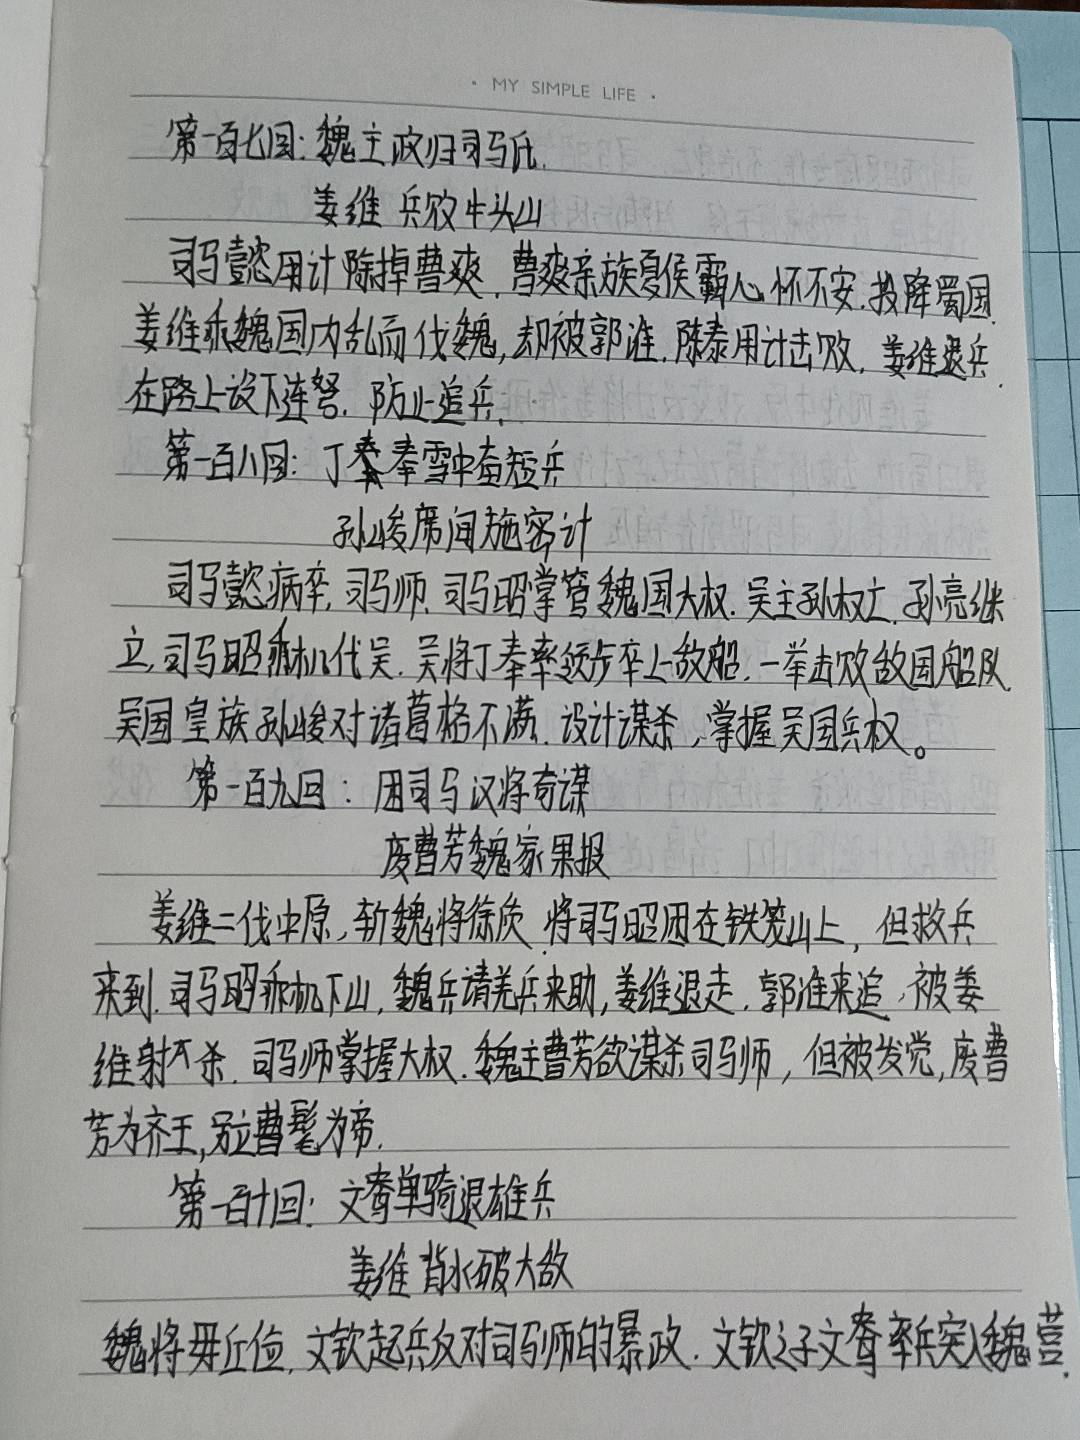 · MY SIMPLE LIFE ·
第一百七回:魏主政归司马氏.
姜维兵败牛头山
司马懿用计除掉曹爽.曹爽亲族夏侯霸心怀不安.投降蜀国.
姜维乘魏国内乱而伐魏,却被郭淮.陈泰用计击败.姜维退兵.
在路上设下连弩.防止追兵.
第一百八回:丁奉雪中奋短兵
孙峻席间施密计
司马懿病卒.司马师.司马昭掌管魏国大权.吴主孙权亡.孙亮继
立,司马昭乘机伐吴.吴将丁奉率领步卒上敌船.一举击败敌国船队.
吴国皇族孙峻对诸葛恪不满.设计谋杀,掌握吴国兵权。
第一百九回:困司马汉将奇谋
废曹芳魏家果报
姜维二伐中原,斩魏将徐质.将司马昭困在铁笼山上,但救兵
来到.司马昭乘机下山,魏兵请羌兵来助,姜维退走.郭淮来追,被姜
维射杀.司马师掌握大权.魏主曹芳欲谋杀司马师,但被发觉,废曹
芳为齐王,另立曹髦为帝.
第一百十回:文鸯单骑退雄兵
姜维背水破大敌
魏将毋丘俭.文钦起兵反对司马师的暴政.文钦之子文鸯率兵突入魏营.